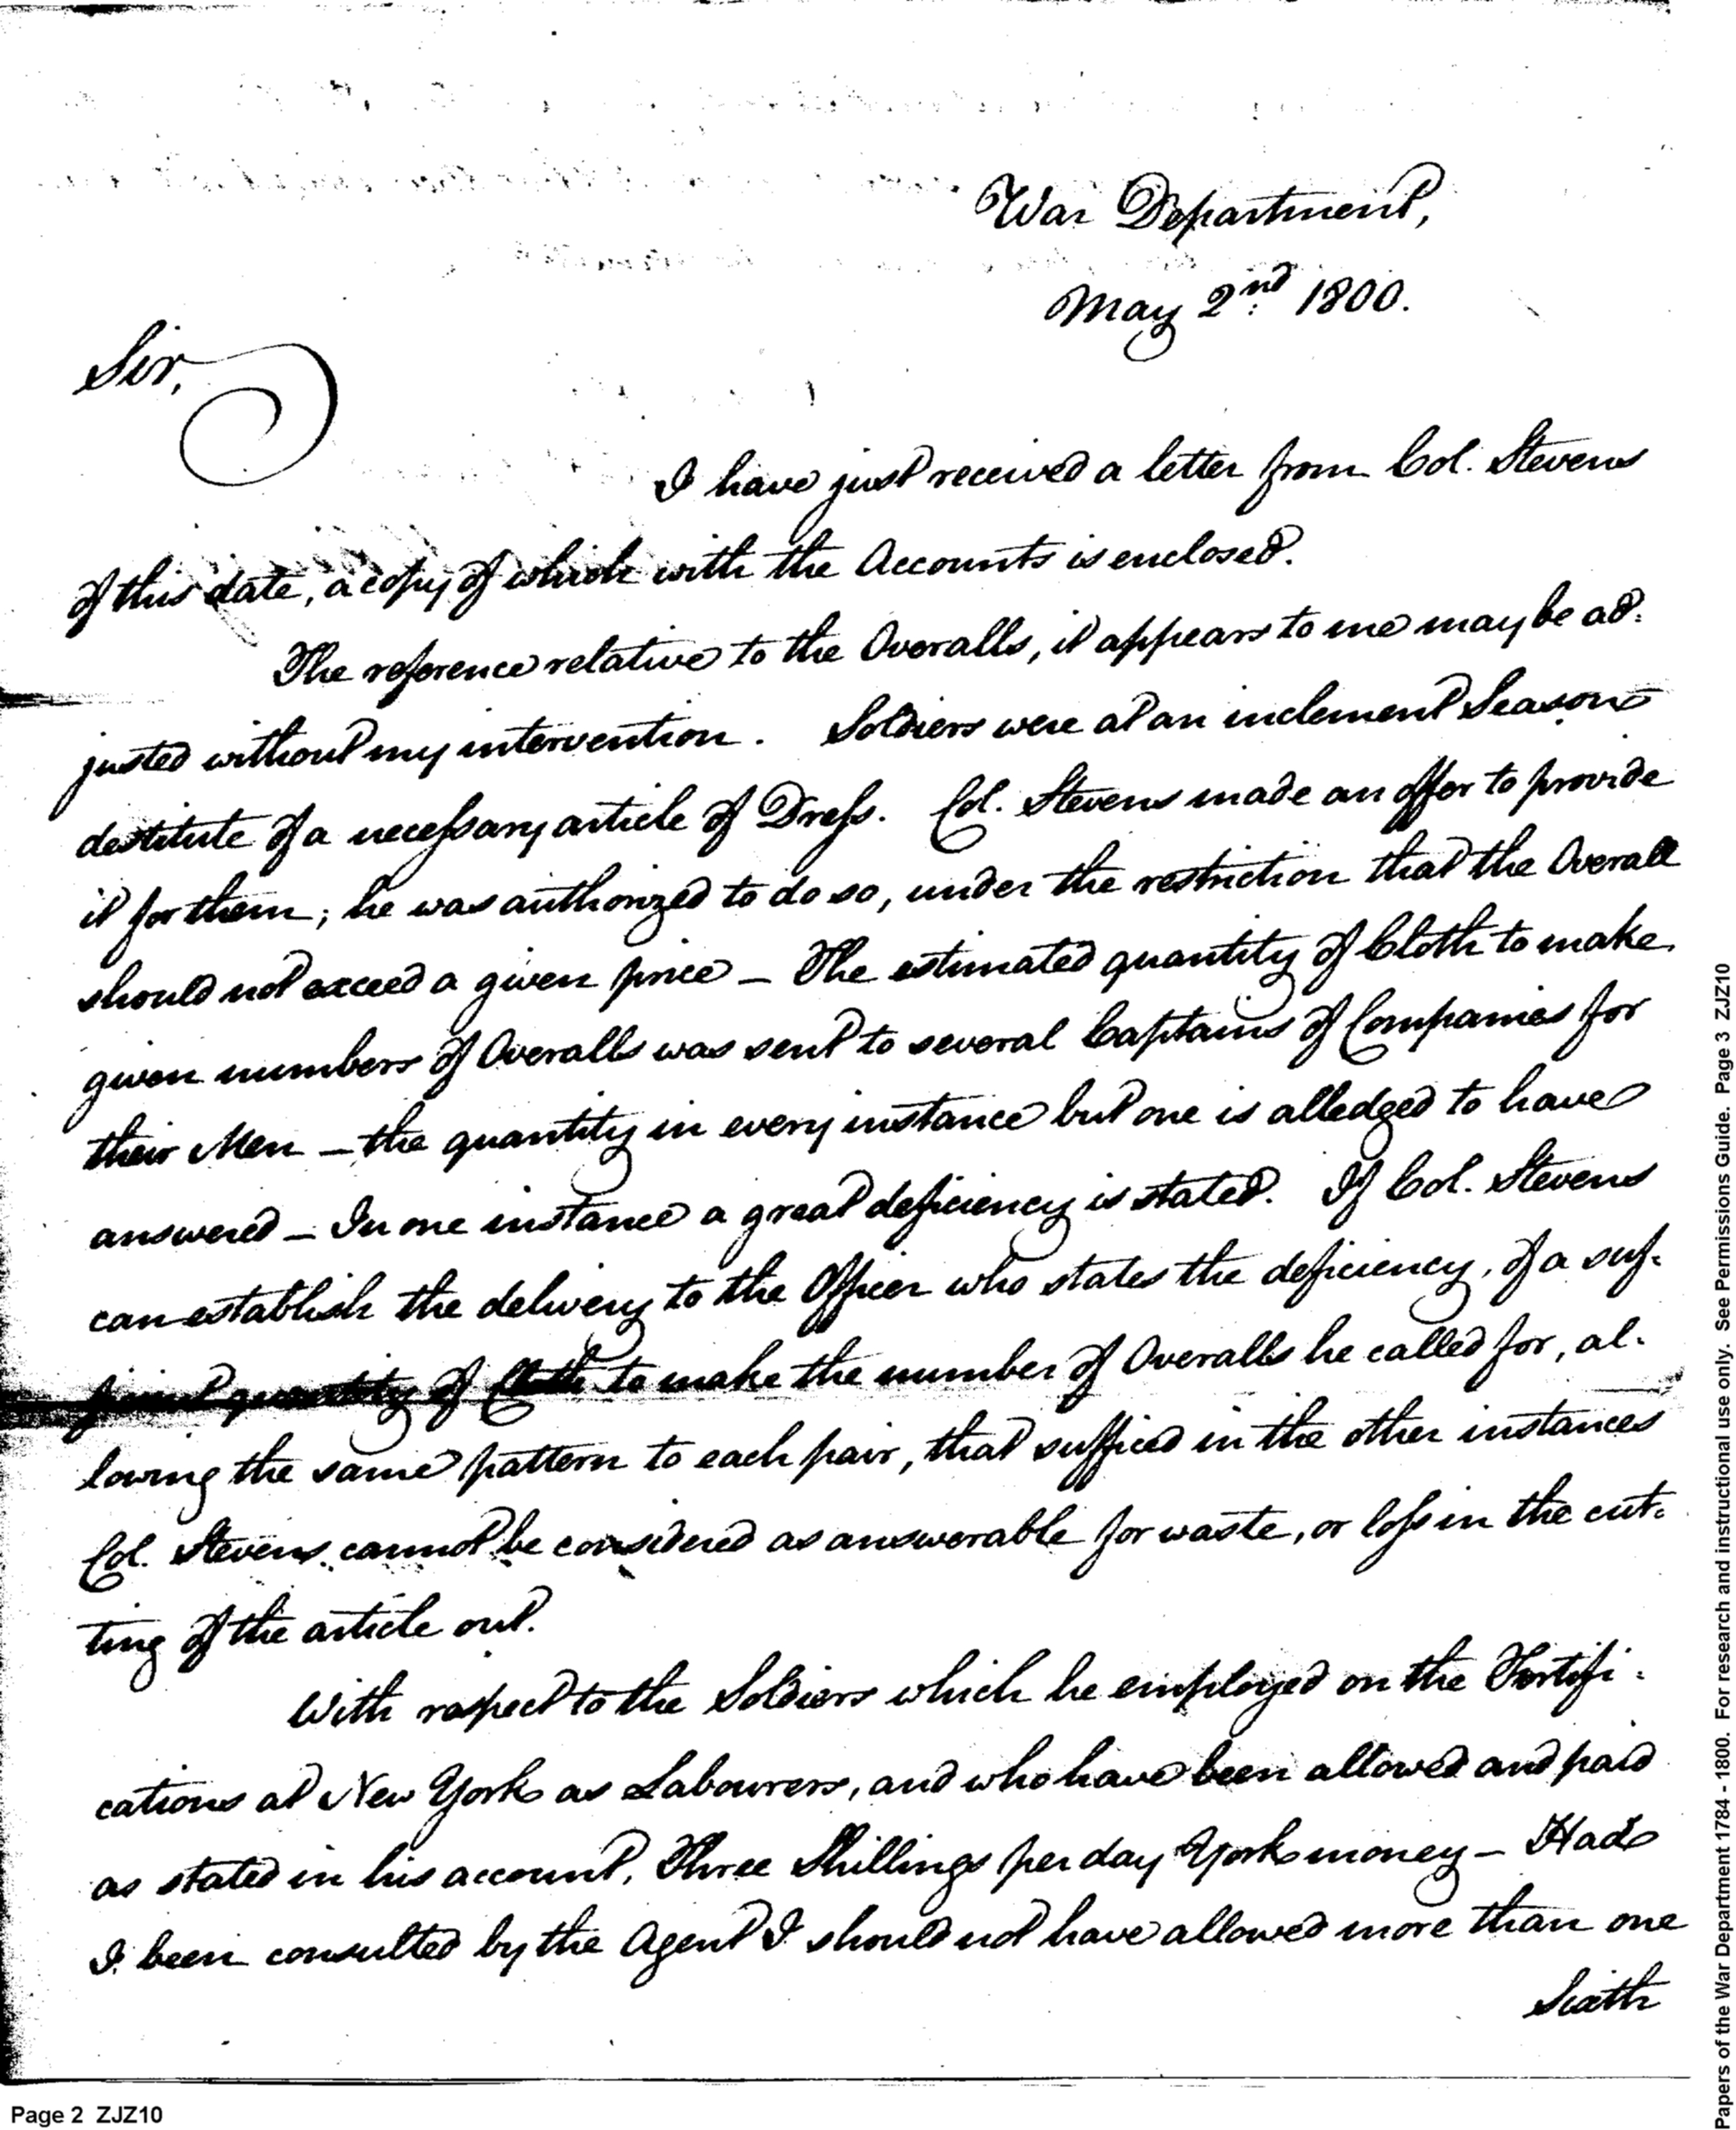 War Department,
May 2nd: 1800.
Sir,
I have just received a letter from Col. Stevens
of this date, a copy of which with the Accounts is enclosed.
The reference relative to the Overalls, it appears to me may be ad:
justed without my intervention. Soldiers were at an inclement Season
destitute of a necessary article of Dress. Col. Stevens made an offer to provide
it for them; he was authorized to do so, under the restriction that the Overall
should not exceed a given price – The estimated quantity of Cloth to make
given numbers of Overalls was sent to several Captains of Companies for
their Men – the quantity in every instance but one is alledged to have
answered – In one instance a great deficiency is stated. If Col. Stevens
can establish the delivery to the Officer who states the deficiency, of a suf-
ficient quantity of Cloth to make the number of Overalls he called for, al-
lowing the same pattern to each pair, that sufficed in the other instances
Col. Stevens cannot be considered as answerable for waste, or loss in the cut-
ting of the article out.
With respect to the Soldiers which he employed on the Fortifi:
cations at New York as Labourers, and who have been allowed and paid
as stated in his account, Three Shillings per day York money – Had
I been consulted by the Agent I should not have allowed more than one
Sixth
Page 2 ZJZ10
Papers of the War Department 1784 - 1800. For research and instructional use only. See Permissions Guide. Page 3 ZJZ10